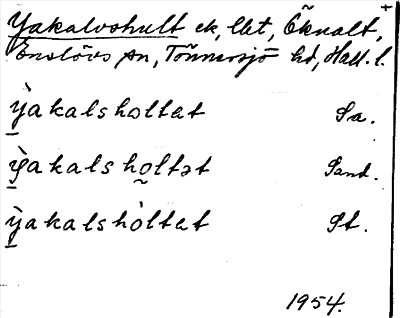 +
Yakalvshult ek, lht, Eknalt,
Enslövs sn, Tönnersjö hd, Hall. l.
ỳ̠akalsholtet Sa.
ỳ̠akalsho̰ltət Sand.
ỳ̠akalshòltet St.
1954.